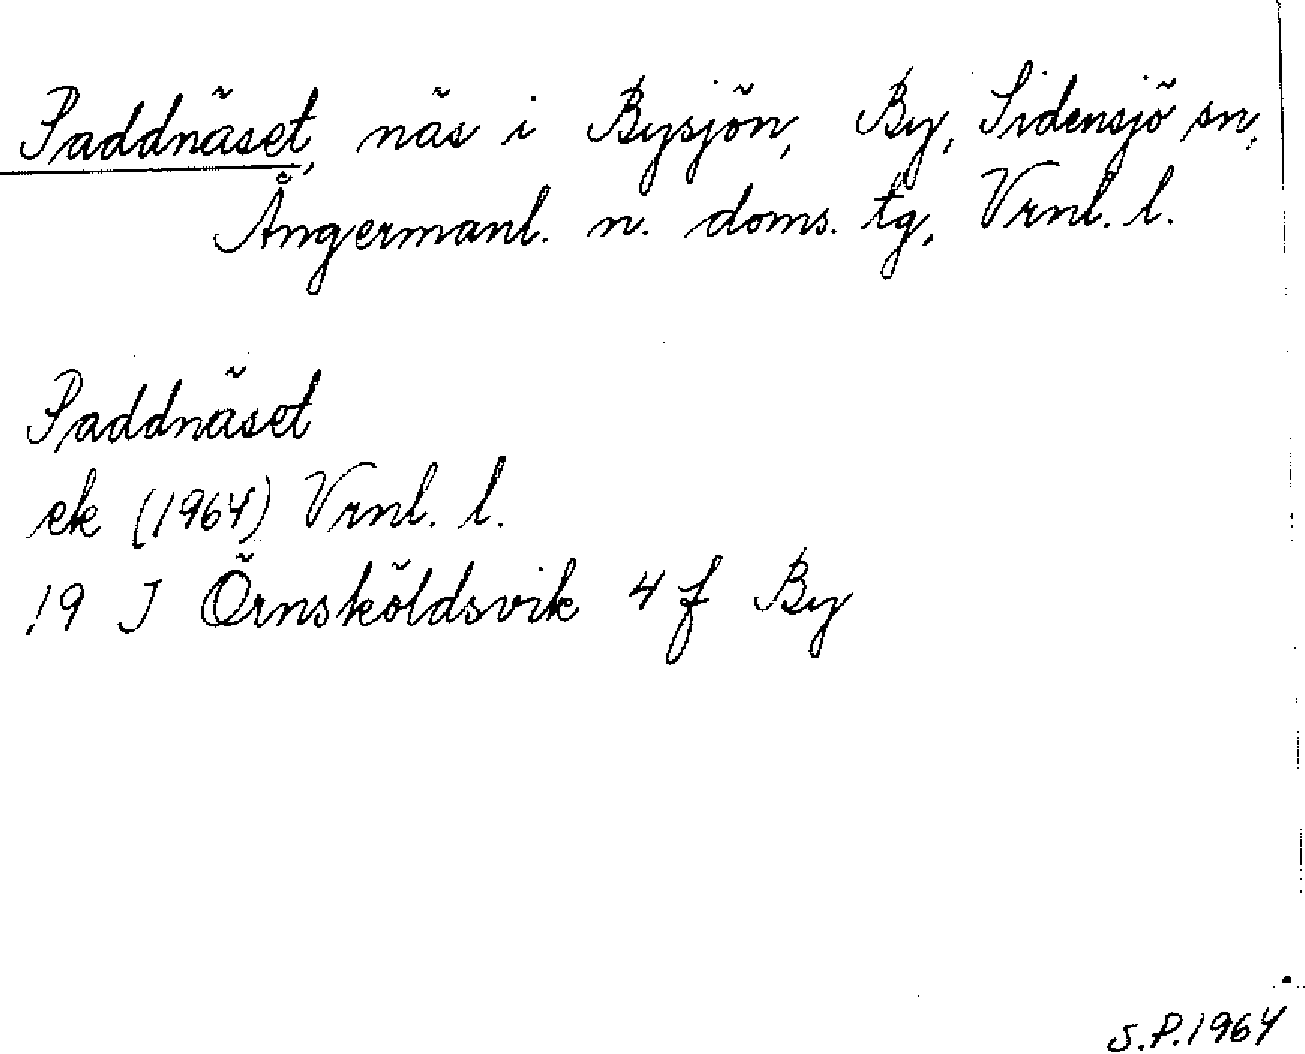 Paddnäset, näs i Bysjön, By, Sidensjö sn,
Ångermanl. n. doms. tg, Vrnl. l.
Paddnäset
ek (1964) Vrnl. l.
19 J Örnsköldsvik 4 f By
S.P. 1964